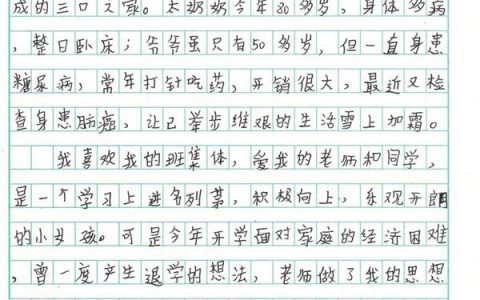 成的三口之家。太奶奶今年80多岁，身体多病
，整日卧床；爷爷虽只有50多岁，但一直身患
糖尿病，常年打针吃药，开销很大，最近又检
查身患肺癌，让已举步维艰的生活雪上加霜。
我喜欢我的班集体，爱我的老师和同学，
是一个学习上进名列前茅，积极向上，乐观开朗
的小女孩。可是今年开学面对家庭的经济困难
，曾一度产生退学的想法，老师做了我的思想